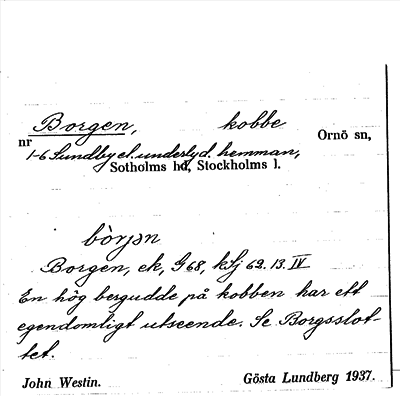 Borgen, kobbe
nr Ornö sn,
1-6 Sundby el. underlyd. hemman,
Sotholms hd, Stockholms l.
bòrjən
Borgen, ek, G 68, kSj 62. 13. IV
En hög bergudde på kobben har ett
egendomligt utseende. Se Borgsslot-
tet.
John Westin. Gösta Lundberg 1937.